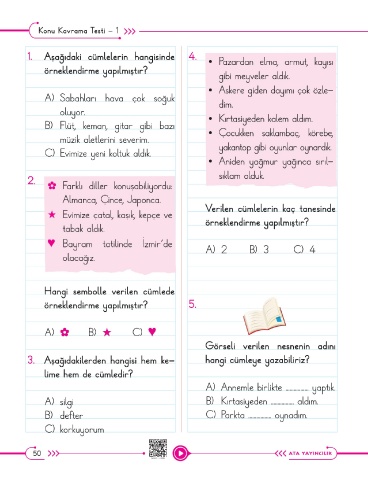 Konu Kavrama Testi – 1
1. Aşağıdaki cümlelerin hangisinde
örneklendirme yapılmıştır?
A) Sabahları hava çok soğuk
oluyor.
B) Flüt, keman, gitar gibi bazı
müzik aletlerini severim.
C) Evimize yeni koltuk aldık.
2.
Farklı diller konuşabiliyordu:
Almanca, Çince, Japonca.
Evimize çatal, kaşık, kepçe ve
tabak aldık.
Bayram tatilinde İzmir'de
olacağız.
Hangi sembolle verilen cümlede
örneklendirme yapılmıştır?
A) B) C)
3. Aşağıdakilerden hangisi hem ke-
lime hem de cümledir?
A) silgi
B) defter
C) korkuyorum
4.
• Pazardan elma, armut, kayısı
gibi meyveler aldık.
• Askere giden dayımı çok özle-
dim.
• Kırtasiyeden kalem aldım.
• Çocukken saklambaç, körebe,
yakantop gibi oyunlar oynardık.
• Aniden yağmur yağınca sırıl-
sıklam olduk.
Verilen cümlelerin kaç tanesinde
örneklendirme yapılmıştır?
A) 2 B) 3 C) 4
5.
Görseli verilen nesnenin adını
hangi cümleye yazabiliriz?
A) Annemle birlikte ............ yaptık.
B) Kırtasiyeden ............ aldım.
C) Parkta ............ oynadım.
50
ATA YAYINCILIK